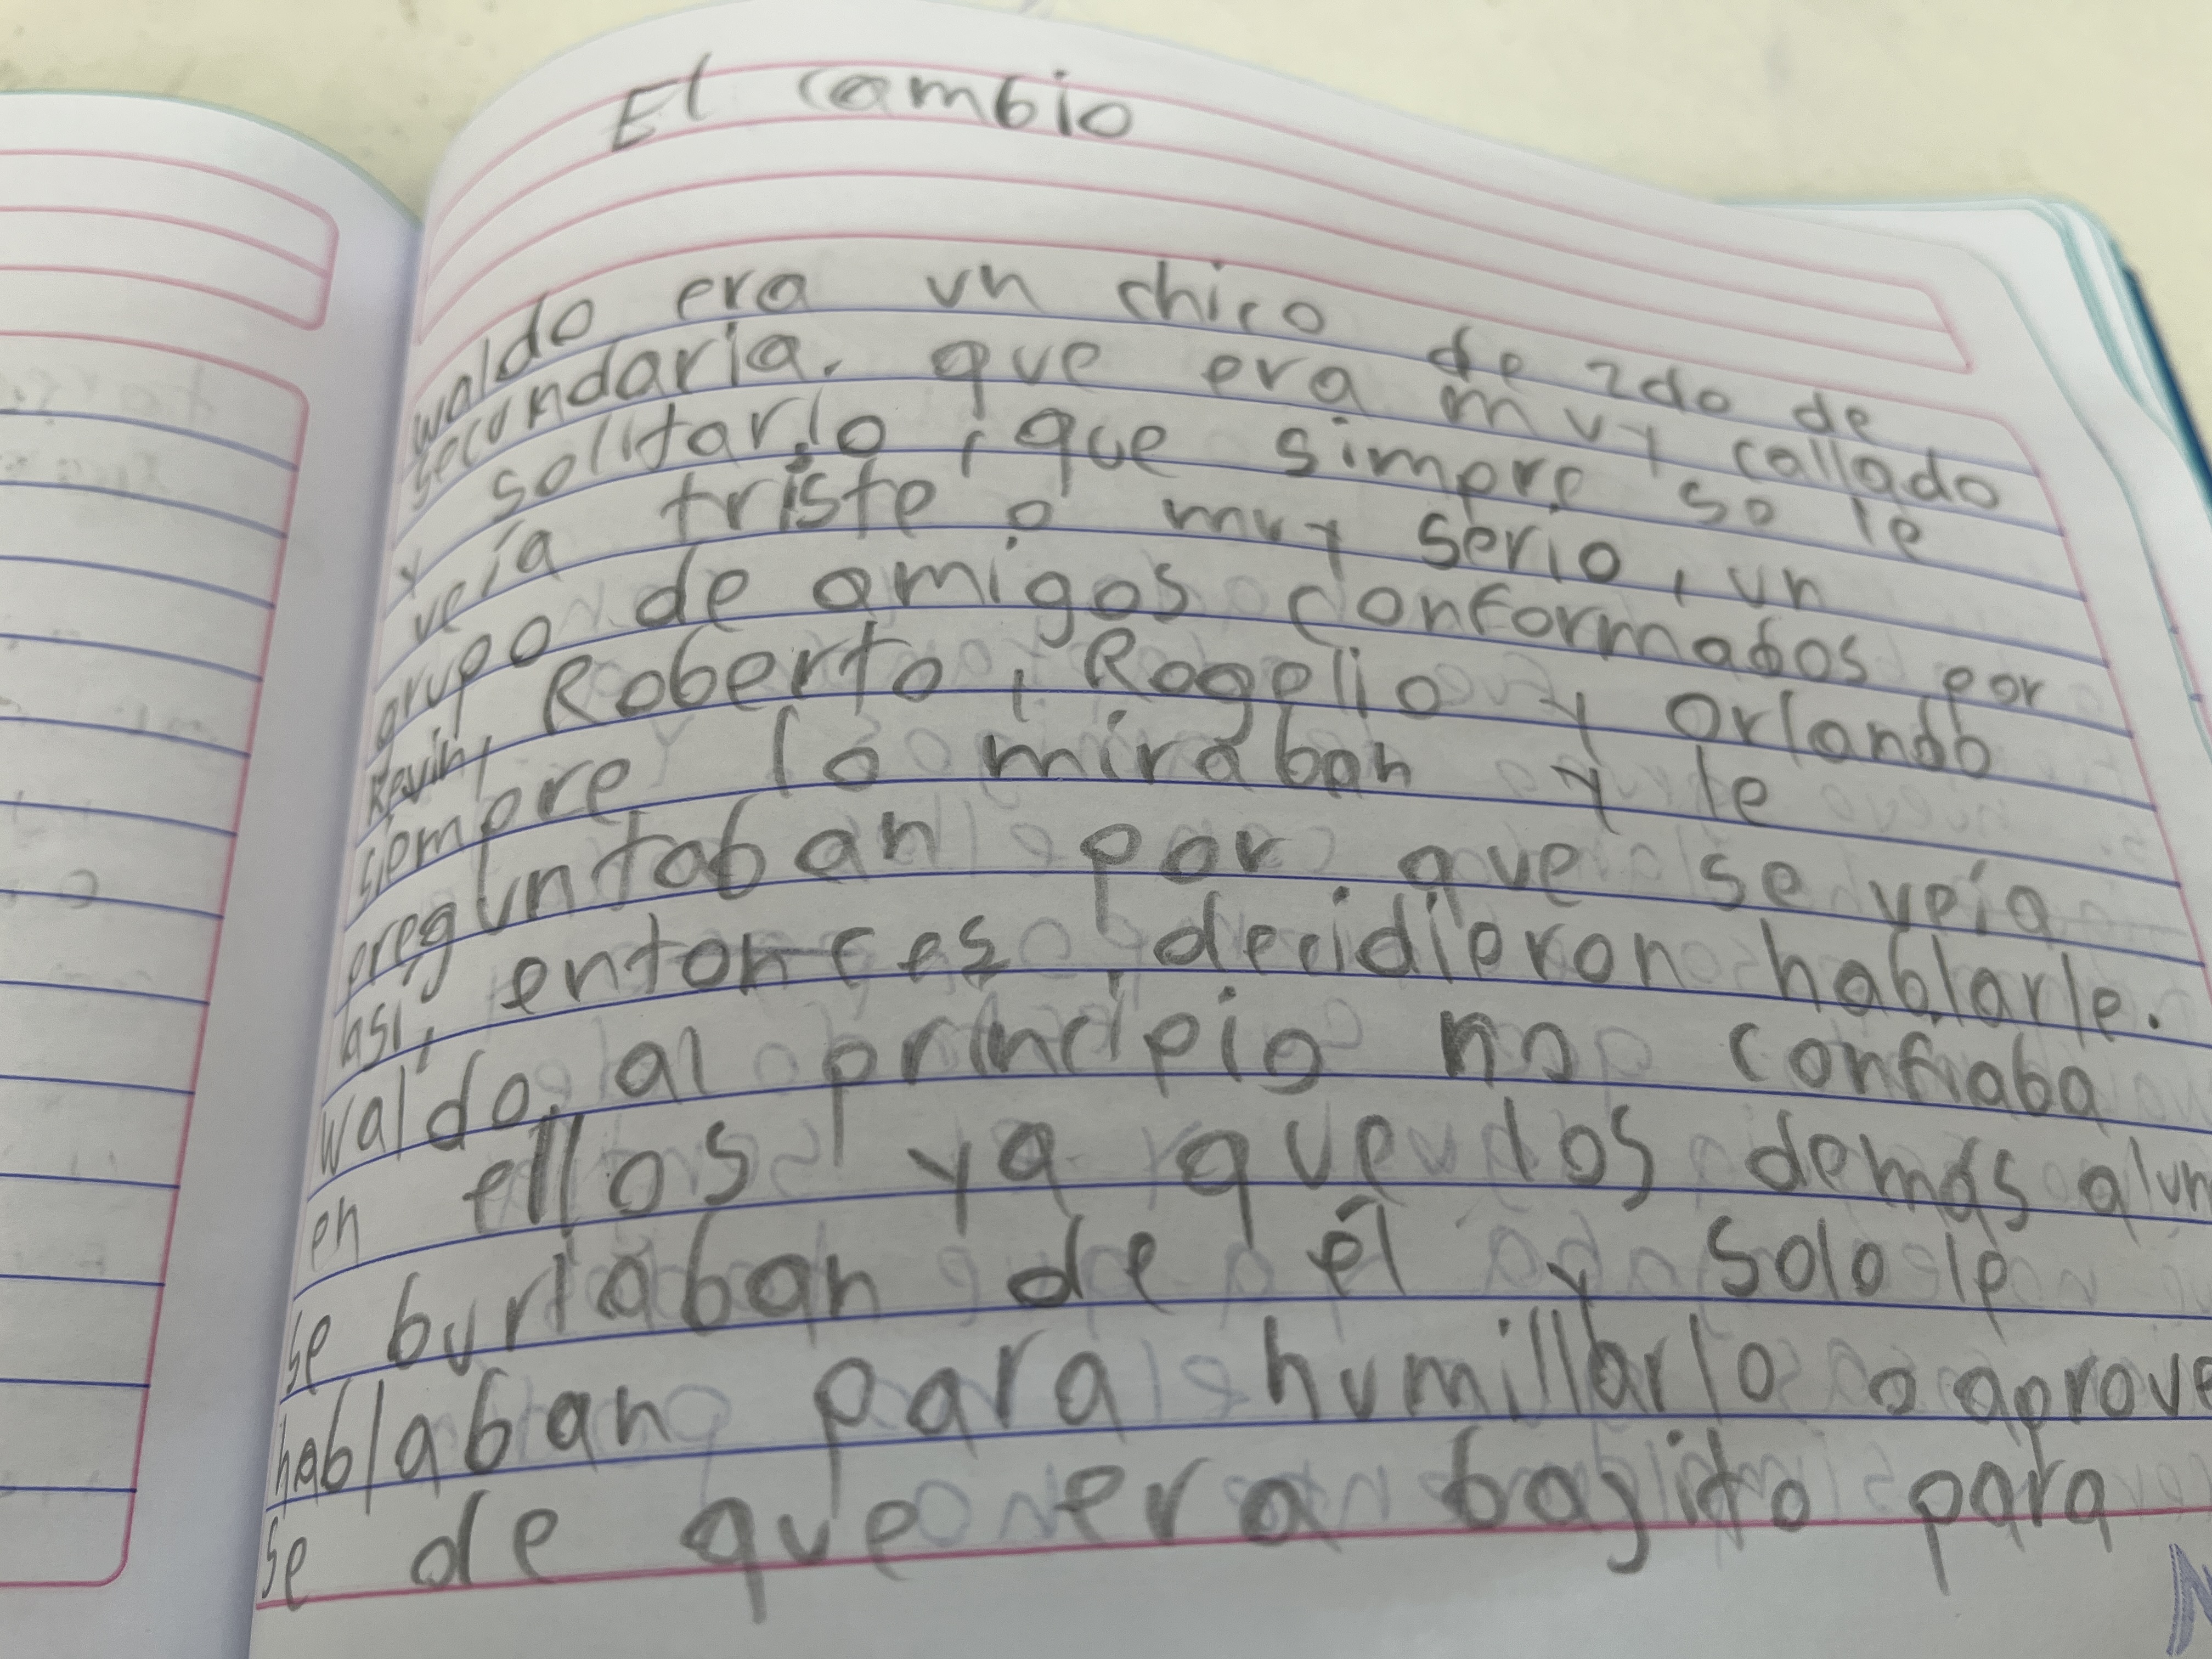 El cambio
waldo era un chico de 2do de
secundaria. que era muy callado
y solitario, que simpre se le
veía triste o muy serio, un
grupo de amigos conformados por
Kevin, Roberto, Rogelio y Orlando
siempre lo miraban y le
preguntaban por que se veía
asi, entonces decidieron hablarle.
waldo, al principio no confiaba
en ellos ya que los demás alum
se burlaban de él y solo le
hablaban para humillarlo o aprove
se de que era bajito para